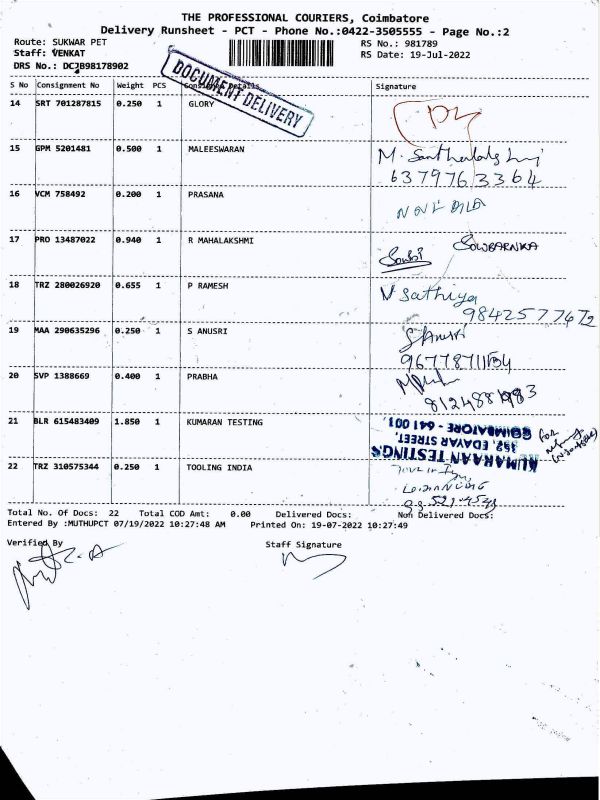 THE PROFESSIONAL COURIERS, Coimbatore
Delivery Runsheet - PCT - Phone No.:0422-3505555 - Page No.:2
Route: SUKWAR PET
RS No.: 981789
Staff: VENKAT
RS Date: 19-Jul-2022
DRS No.: DCJB98178902
DOCUMENT DELIVERY
S No Consignment No Weight PCS Consignee Details Signature
14 SRT 701287815 0.250 1 GLORY
15 GPM 5201481 0.500 1 MALEESWARAN
6379763364
16 VCM 758492 0.200 1 PRASANA
17 PRO 13487022 0.940 1 R MAHALAKSHMI
SOWBARNIKA
18 TRZ 280026920 0.655 1 P RAMESH
V Sathiya
9842577672
19 MAA 290635296 0.250 1 S ANUSRI
S Anusri
20 SVP 1388669 0.400 1 PRABHA
21 BLR 615483409 1.850 1 KUMARAN TESTING
KUMARAAN TESTINGS
392, EDAYAR STREET,
COIMBATORE - 641 001.
For
22 TRZ 310575344 0.250 1 TOOLING INDIA
Total No. Of Docs: 22 Total COD Amt: 0.00 Delivered Docs: Non Delivered Docs:
Entered By :MUTHUPCT 07/19/2022 10:27:48 AM Printed On: 19-07-2022 10:27:49
Verified By
Staff Signature